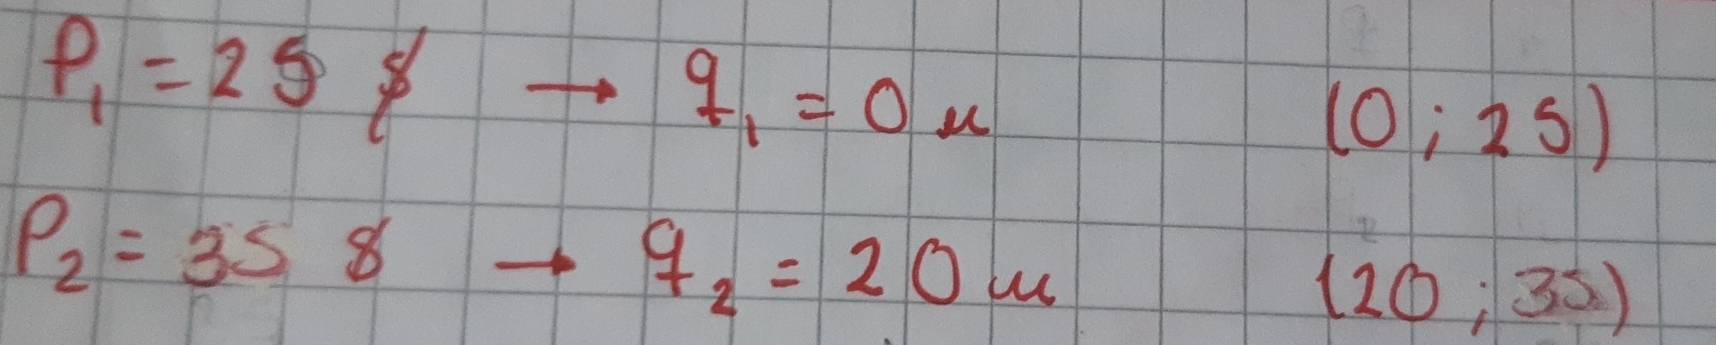 P₁ = 25 $ → q₁ = 0 u (0 ; 25)
P₂ = 35 $ → q₂ = 20 u (20 ; 35)